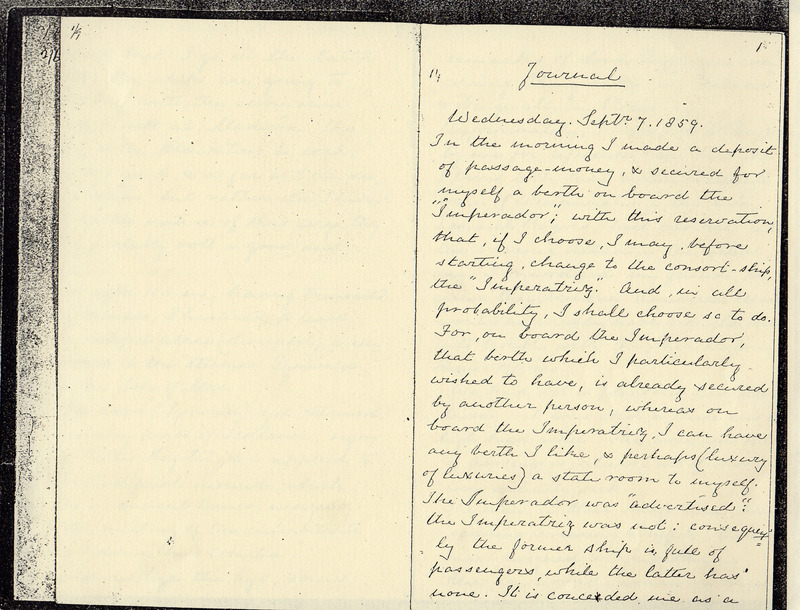 1
Journal
Wednesday. Septr. 7. 1859.
In the morning I made a deposit
of passage-money, & secured for
myself a berth on board the
"Imperador"; with this reservation,
that, if I choose, I may, before
starting, change to the consort-ship,
the "Imperatriz." And, in all
probability, I shall choose so to do.
For, on board the Imperador,
that berth which I particularly
wished to have, is already secured
by another person, whereas on
board the Imperatriz, I can have
any berth I like, & perhaps (luxury
of luxuries) a state room to myself.
The Imperador was "advertised":
the Imperatriz was not: consequent-
ly the former ship is full of
passengers, while the latter has
none. It is conceded me as a